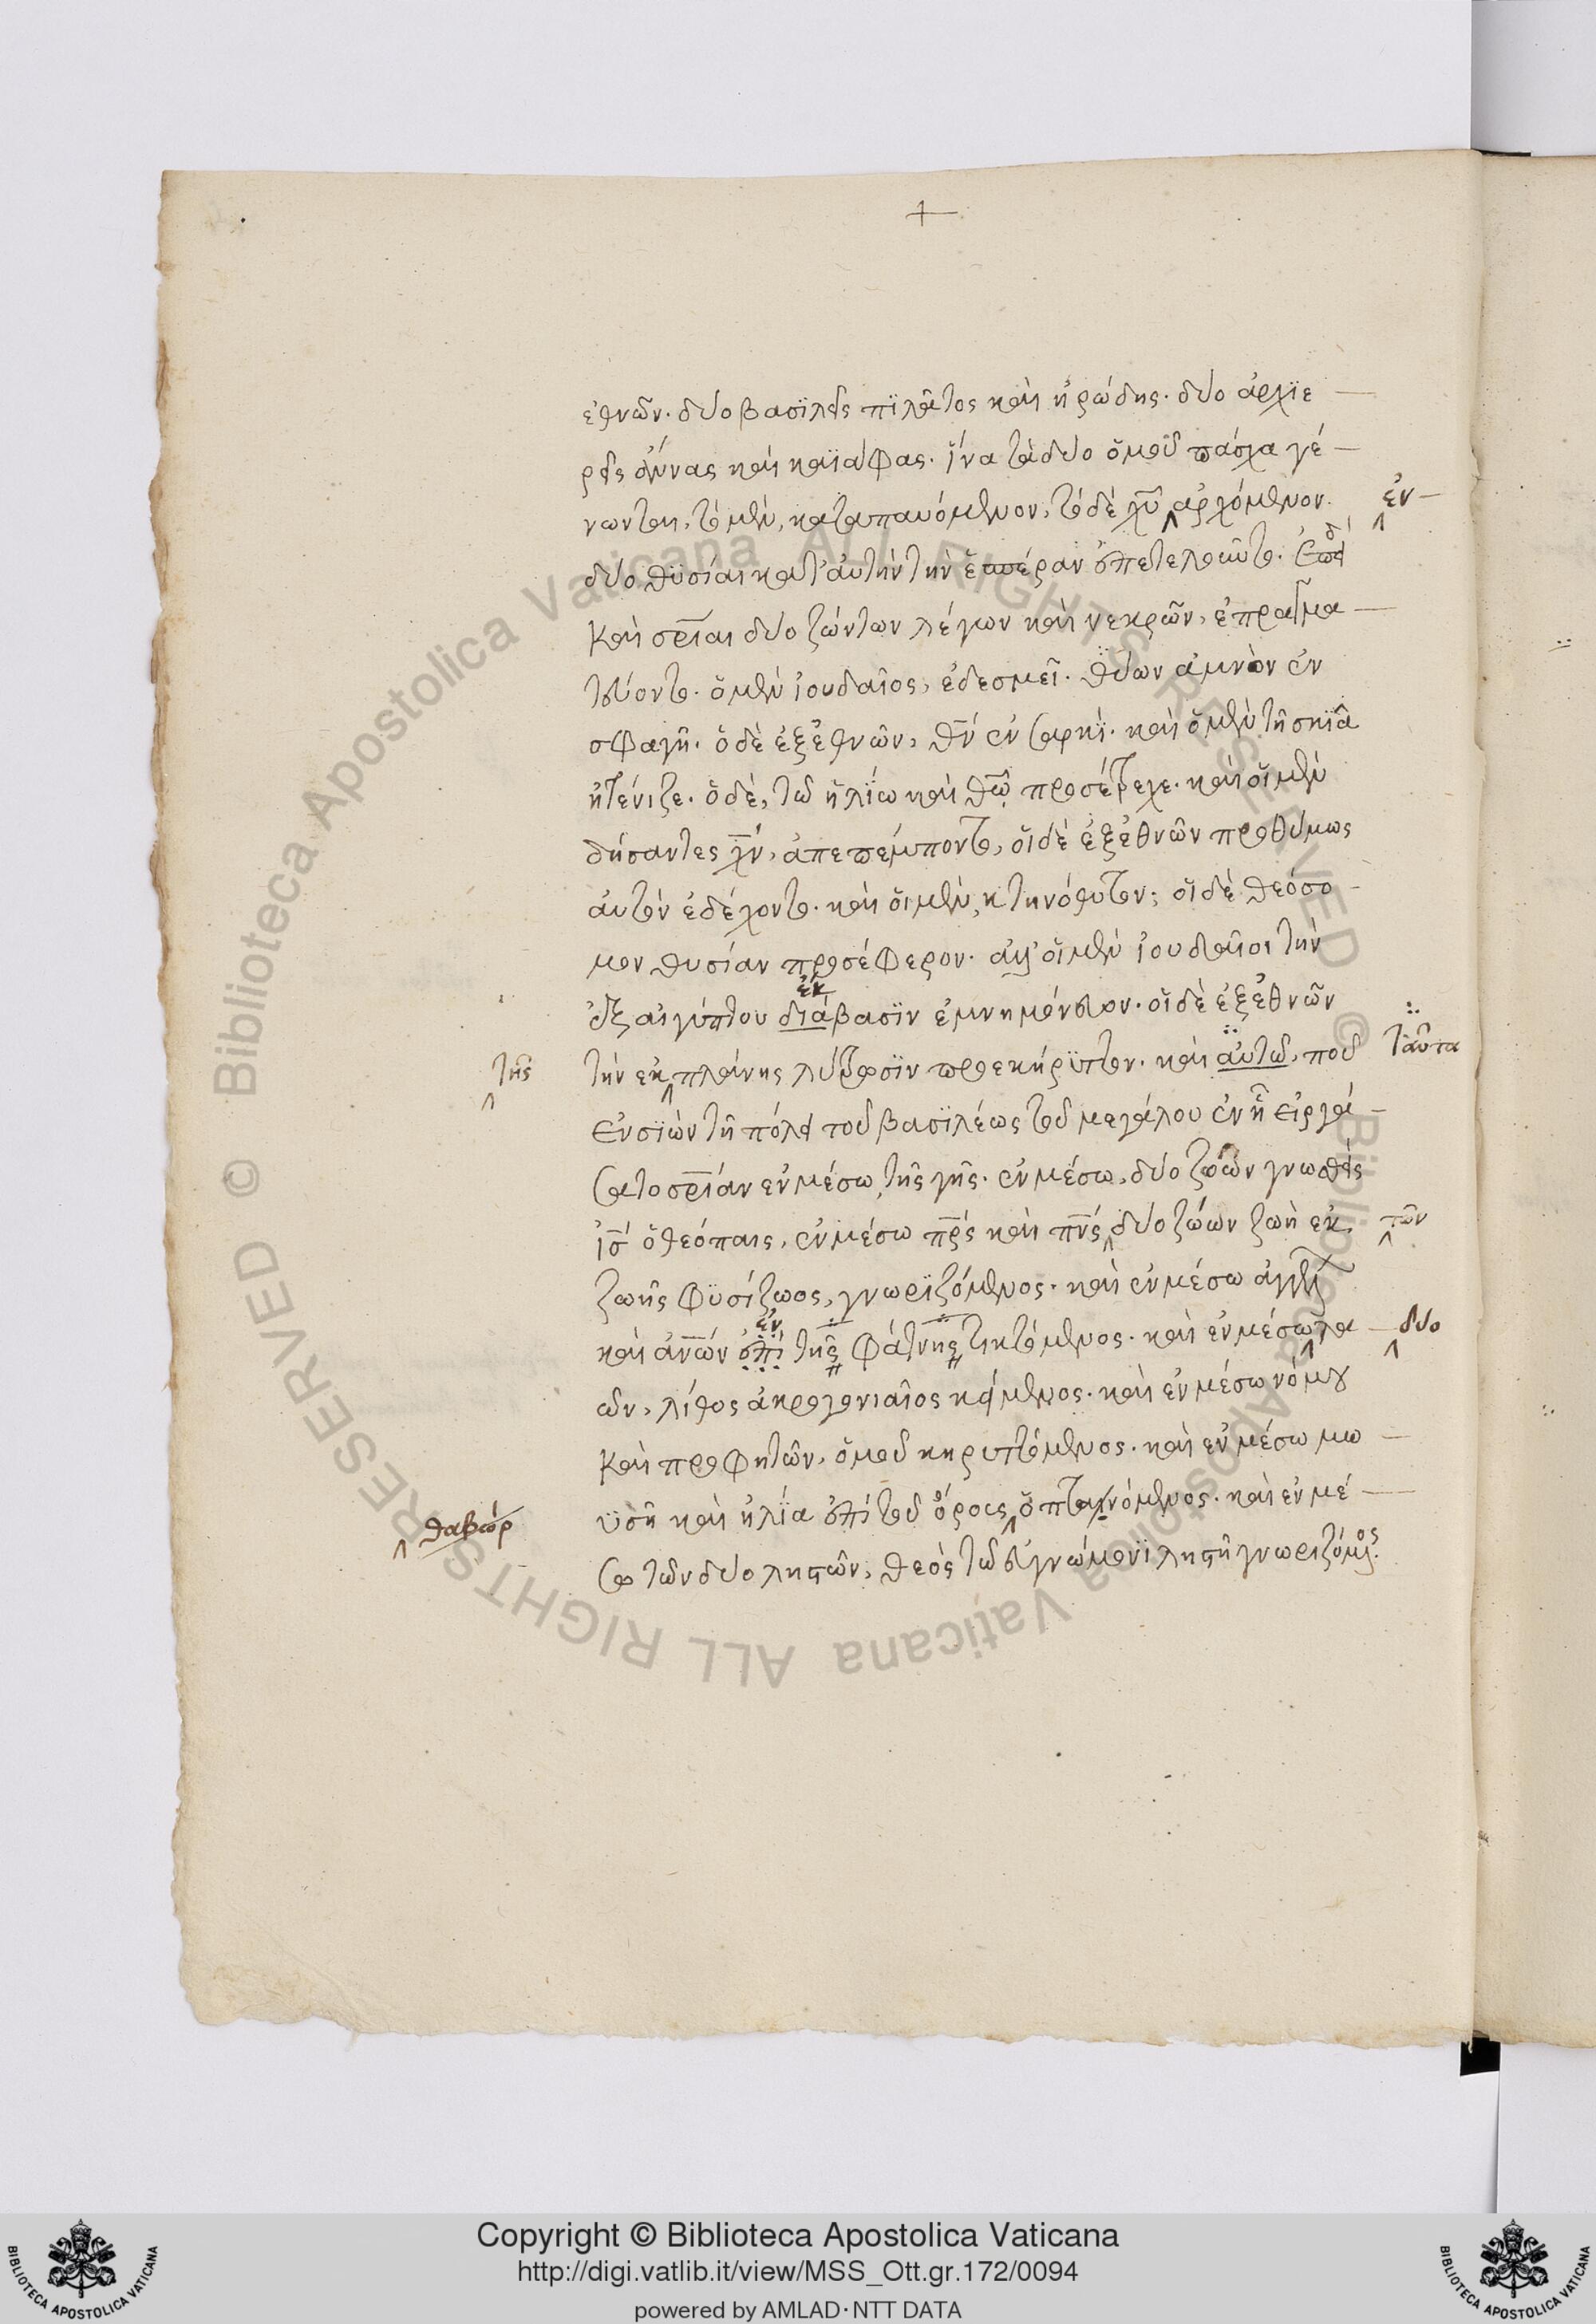 +
ἐθνῶν· δύο βασϊλεῖς πϊλᾶτος καὶ ἡρώδης· δύο ἀρχϊε
ρεῖς ἄννας καὶ καϊάφας· ἵνα τὰ δύο ὁμοῦ πάσχα γέ
νωνται, τὸ μὲν, καταπαυόμενον, τὸ δὲ χῦ ἀρχόμενον.
ἐν
δύο θϋσίαι κατ' αὐτὴν τὴν ἑσπέραν ἐπετελοῦντο.
καὶ σρίαι δύο ζώντων λέγων καὶ νεκρῶν, ἐπραγμα
τεύοντο. ὁ μὲν ἰουδαῖος, ἐδεσμεῖ. θύων ἀμνὸν ἐν
σφαγῆ. ὁ δὲ ἐξ ἐθνῶν, θν ἐν σαρκὶ. καὶ ὁ μὲν τῆ σκϊᾶ
ἠτένιζε. ὁ δὲ, τῶ ἡλίω καὶ θῶ προσέτρεχε. καὶ οἱ μὲν
δήσαντες χν, ἀπεπέμποντο, οἱ δὲ ἐξ ἐθνῶν προθύμως
αὐτὸν ἐδέχοντο. καὶ οἱ μὲν, κτηνόθυτον; οἱ δὲ θεόσο
μον θυσίαν προσέφερον. ἀλλ' οἱ μὲν ἰουδαῖοι τὴν
ἐξ αἰγύπτου διάβασϊν ἐμνημόνευον. οἱ δὲ ἐξ ἐθνῶν
ἐκ
τῆς
τὴν ἐκ πλάνης λύτρωσϊν προεκήρϋττον. καὶ αὐτῶ, ποῦ
ταῦτα
ἐν σϊὼν τῆ πόλει τοῦ βασϊλέως τοῦ μεγάλου ἐν ἧ εἰργά
σατο σρίαν ἐν μέσω τῆς γῆς. ἐν μέσω, δύο ζώων γνωσθεὶς
ις ὁ θεόπαις, ἐν μέσω πρς καὶ πνς δύο ζώων ζωὴ ἐκ
τῶν
ζωῆς φϋσίζωος, γνωρϊζόμενος. καὶ ἐν μέσω ἀγγέλων
καὶ ἀνων ἐπὶ τῆς φάτνης τικτόμενος. καὶ ἐν μέσω λα
ἐν
δυο
ῶν, λίθος ἀκρογωνιαῖος κείμενος. καὶ ἐν μέσω νόμου
καὶ προφητῶν, ὁμοῦ κηρυττόμενος. καὶ ἐν μέσω μω
ϋσῆ καὶ ἠλία ἐπὶ τοῦ ὄρους ὀπτανόμενος. καὶ ἐν μέ
θαβώρ
σω τῶν δύο ληστῶν, θεὸς τῶ εὐγνώμονϊ ληστῆ γνωριζόμενος.
Copyright © Biblioteca Apostolica Vaticana
http://digi.vatlib.it/view/MSS_Ott.gr.172/0094
powered by AMLAD·NTT DATA
BIBLIOTECA APOSTOLICA VATICANA
BIBLIOTECA APOSTOLICA VATICANA
Biblioteca Apostolica Vaticana ALL RIGHTS RESERVED ©
Biblioteca Apostolica Vaticana ALL RIGHTS RESERVED ©